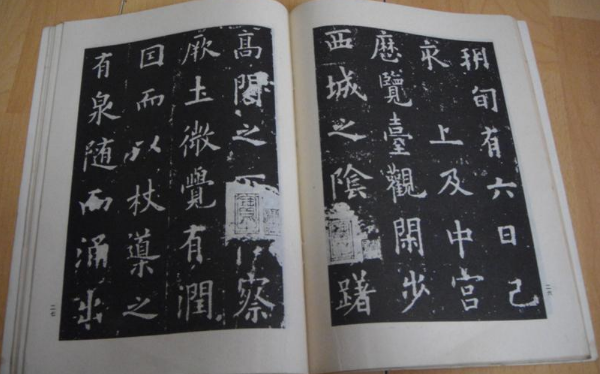 朔旬有六日己
亥上及中宮
歷覽臺觀閑步
西城之陰躇
高閣之察
厥土微覺有潤
因而以杖導之
有泉随而涌出